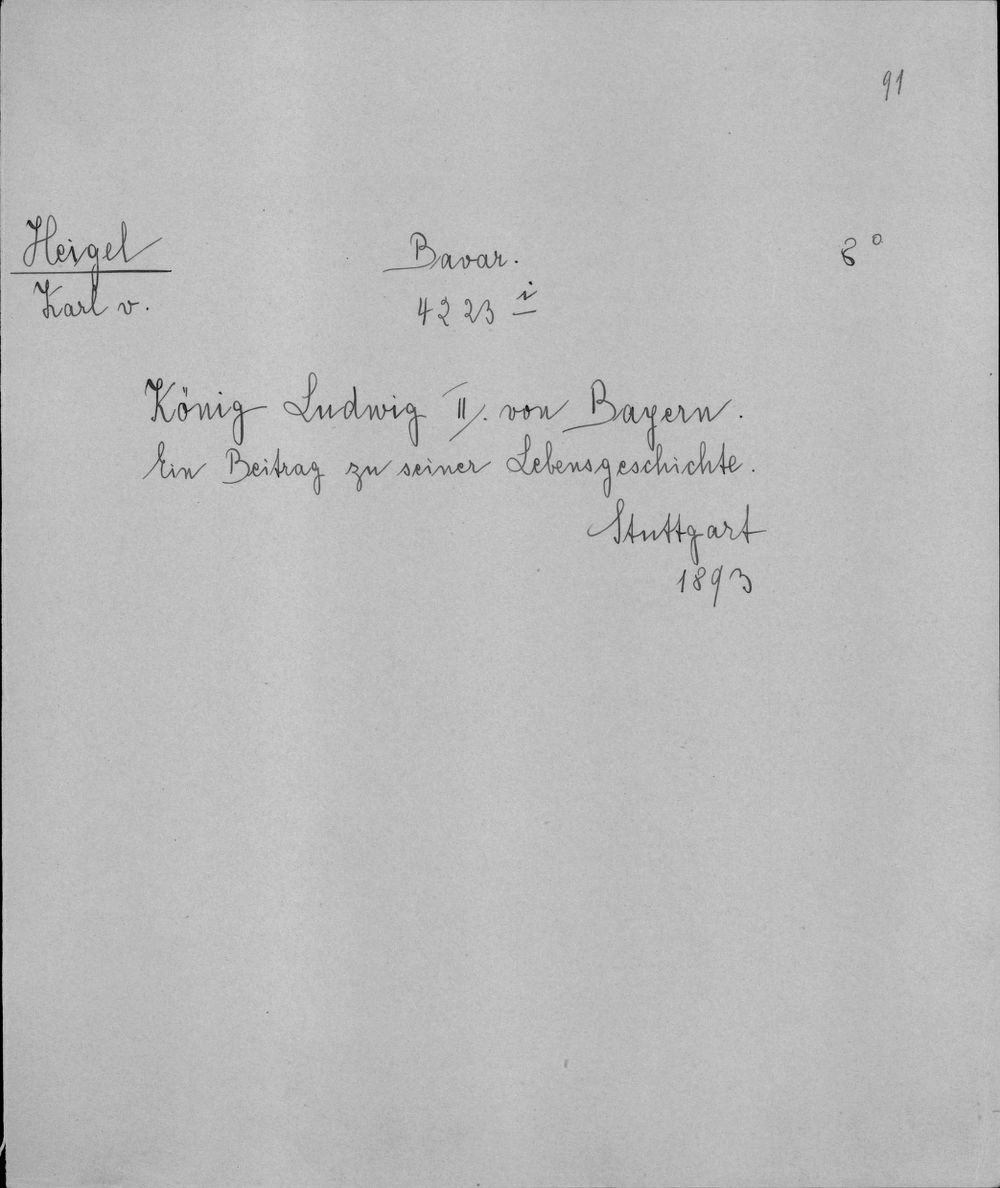 91
Heigel Bavar. 8°
Karl v. 4223 i
König Ludwig II. von Bayern.
Ein Beitrag zu seiner Lebensgeschichte.
Stuttgart
1893